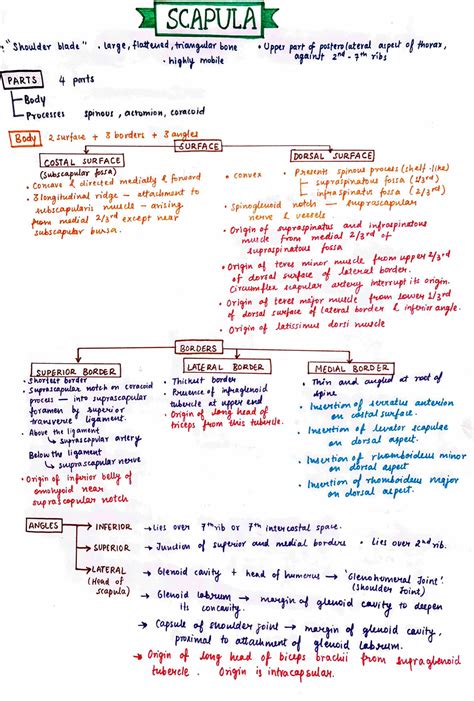 SCAPULA
"Shoulder blade" • large, flattened, triangular bone • Upper part of posterolateral aspect of thorax,
• highly mobile against 2nd - 7th ribs
PARTS 4 parts
Body
Processes spinous, acromion, coracoid
Body 2 surface + 3 borders + 3 angles
SURFACE
COSTAL SURFACE
(subscapular fossa)
• Concave & directed medially & forward
• 3 longitudinal ridge — attachment to
subscapularis muscle — arising
from medial 2/3rd except near
subscapular bursa.
DORSAL SURFACE
• convex • Presents spinous process (shelf-like)
— supraspinatous fossa (1/3rd)
— infraspinatus fossa (2/3rd)
• Spinoglenoid notch — suprascapular
nerve & vessels.
• Origin of supraspinatus and infraspinatous
muscle from medial 2/3rd of
supraspinatous fossa
• Origin of teres minor muscle from upper 2/3rd
of dorsal surface of lateral border.
Circumflex scapular artery interrupt its origin.
• Origin of teres major muscle from lower 1/3rd
of dorsal surface of lateral border & inferior angle.
• Origin of latissimus dorsi muscle
BORDERS
SUPERIOR BORDER
• Shortest border
• Suprascapular notch on coracoid
process — into suprascapular
foramen by superior
transverse ligament.
• Above the ligament
↳ suprascapular artery
Below the ligament
↳ suprascapular nerve
• Origin of inferior belly of
omohyoid near
suprascapular notch
LATERAL BORDER
• Thickest border
• Presence of infraglenoid
tubercle at upper end
• Origin of long head of
triceps from this tubercle.
MEDIAL BORDER
• Thin and angled at root of
spine
• Insertion of serratus anterior
on costal surface.
• Insertion of levator scapulae
on dorsal aspect.
• Insertion of rhomboideus minor
on dorsal aspect
• Insertion of rhomboideus major
on dorsal aspect.
ANGLES → INFERIOR → Lies over 7th rib or 7th intercostal space.
→ SUPERIOR → Junction of superior and medial borders • Lies over 2nd rib.
→ LATERAL → Glenoid cavity + head of humerus → 'Glenohumeral Joint'.
(Head of (Shoulder Joint)
scapula) → Glenoid labrum — margin of glenoid cavity to deepen
its concavity.
→ Capsule of shoulder joint → margin of glenoid cavity,
proximal to attachment of glenoid labrum.
→ Origin of long head of biceps brachii from supraglenoid
tubercle. Origin is intracapsular.